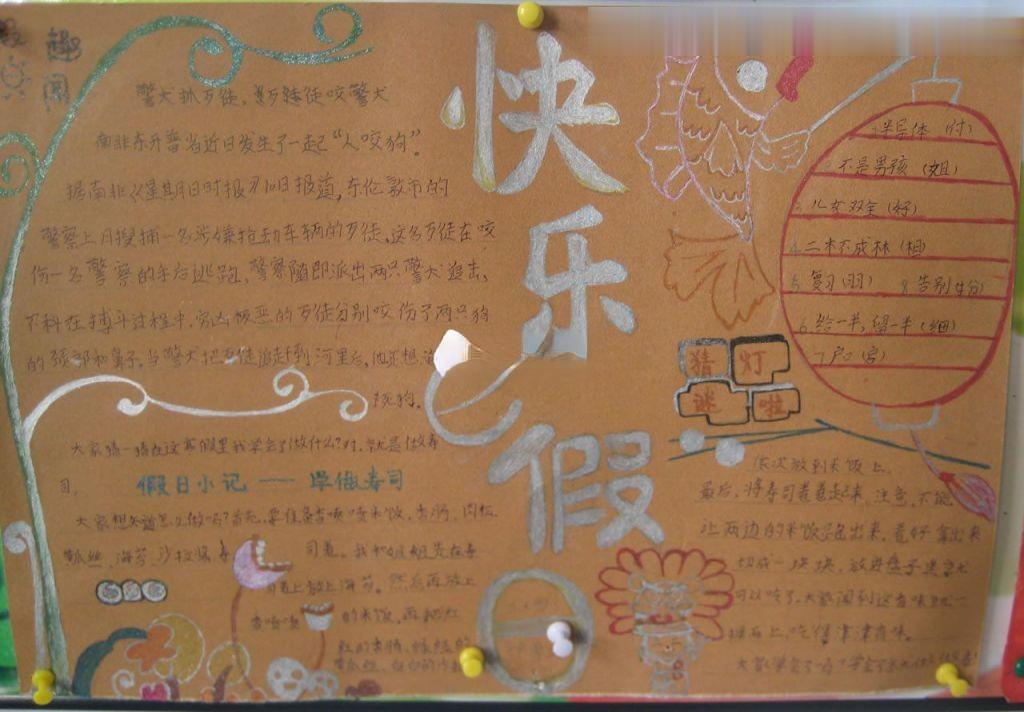 趣
闻
警犬抓歹徒，歹徒咬警犬
南非东开普省近日发生了一起“人咬狗”。
据南非《星期日时报》10日报道，东伦敦市的
警察上月搜捕一名涉嫌抢劫车辆的歹徒，这名歹徒在咬
伤一名警察的手后逃跑，警察随即派出两只警犬追击，
不料在搏斗过程中，穷凶极恶的歹徒分别咬伤了两只狗
的颈部和鼻子，当警犬把歹徒追赶到河里后，他还想
死狗。
快
乐
假
半导体（付）
不是男孩（姐）
3.儿女双全（好）
4.二木不成林（相）
5.复习（羽）
8.告别（分）
6.给一半，留一半（细）
7户口
猜 灯
谜 啦
大家猜一猜在这寒假里我学会了做什么？对，就是做寿
司，
假日小记——学做寿司
大家想知道怎么做吗？首先，要准备香喷喷米饭，肉松
黄瓜丝、海苔、沙拉酱、寿
司卷。我和姐姐先在寿
司卷上放上海苔。然后再放上
香喷喷
的米饭，再把红
红的香肠、绿绿的
黄瓜丝、白白的沙
依次放到米饭上。
最后，将寿司卷卷起来，注意，不能
让两边的米饭跑出来，卷好拿出来
切成一块块，放进盘子里就
可以吃了。大家闻到这香味就一
拥而上，吃得津津有味。
大家学会了吗？